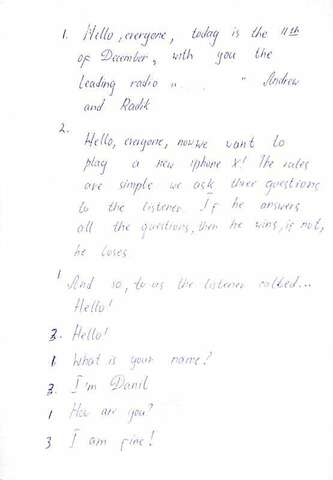 1. Hello, everyone, today is the 11th
of December, with you the
leading radio "....." Andrew
and Radik
2.
Hello, everyone, now we want to
play a new iphone X! The rules
are simple we ask three questions
to the listener. If he answers
all the questions, then he wins, if not,
he loses
1 And so, to us the listener called...
Hello!
3. Hello!
1. What is your name?
3. I'm Danil
1 How are you?
3 I am fine!